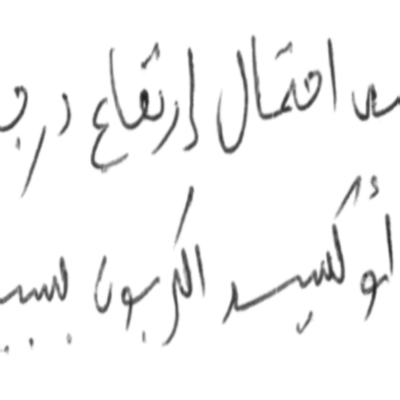 احتمال إرتفاع درجـ
أوكسيد الكربون بسبـ